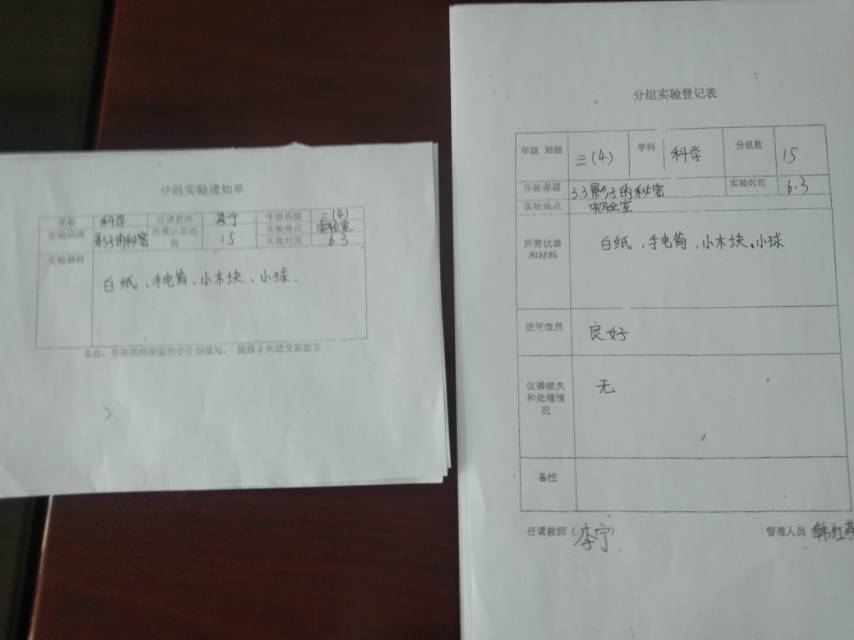 分组实验通知单
学科 科学 任课教师 李宁 年级班级 三(4)
实验课题 影子的秘密 15 实验地点 实验室
实验时间 6.3
实验器材
白纸、手电筒、小木块、小球.
提前3天送交实验室
分组实验登记表
年级 班级 三(4) 学科 科学 分组数 15
实验课题 3.3影子的秘密 实验时间 6.3
实验地点 实验室
所需仪器和材料 白纸、手电筒、小木块、小球
使用效果 良好
仪器损失和处理情况 无
备注
任课教师( 李宁 ) 管理人员